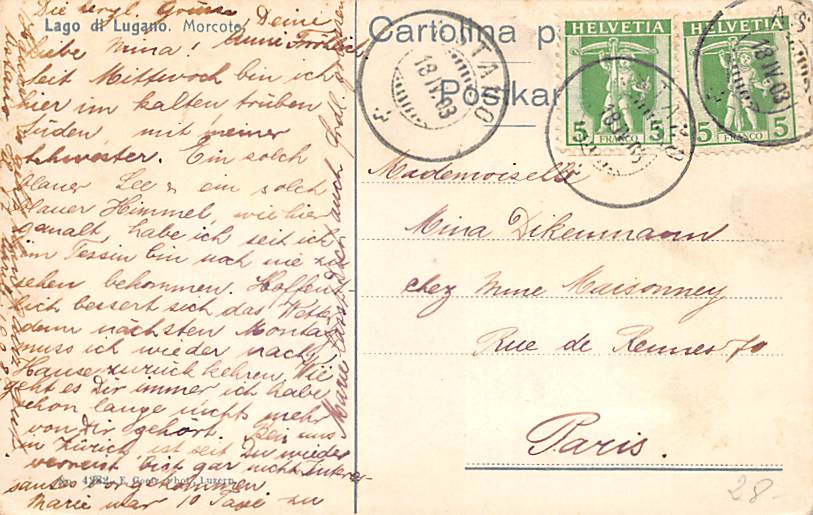 Die herzl. Grüsse
Deine
Anni Frölich
Lago di Lugano. Morcote
liebe Mina!
seit Mittwoch bin ich
hier im kalten trüben
Süden, mit meiner
Schwester. Ein solch
blauer See & ein solch
blauer Himmel, wie hier
gemalt, habe ich seit ich
im Tessin bin noch nie zu
sehen bekommen. Hoffent-
lich bessert sich das Wetter
denn nächsten Montag
muss ich wieder nach
Hause zurück kehren. Wie
geht es Dir immer ich habe
schon lange nichts mehr
von Dir gehört. Bei uns
in Zürich ist seit Du wieder
verreist bist gar nicht Interes-
santes vorgekommen
Marie war 10 Tage zu
Marie lässt Dich auch
No. 4282
Luzern
Cartolina p
Postkar
HELVETIA
5 FRANCO 5
HELVETIA
5 FRANCO 5
18 IV 03
18 IV 03
18 IV 03
Mademoiselle
Mina Dikenmann
chez Mme Maisonney
Rue de Rennes 70
Paris.
28-